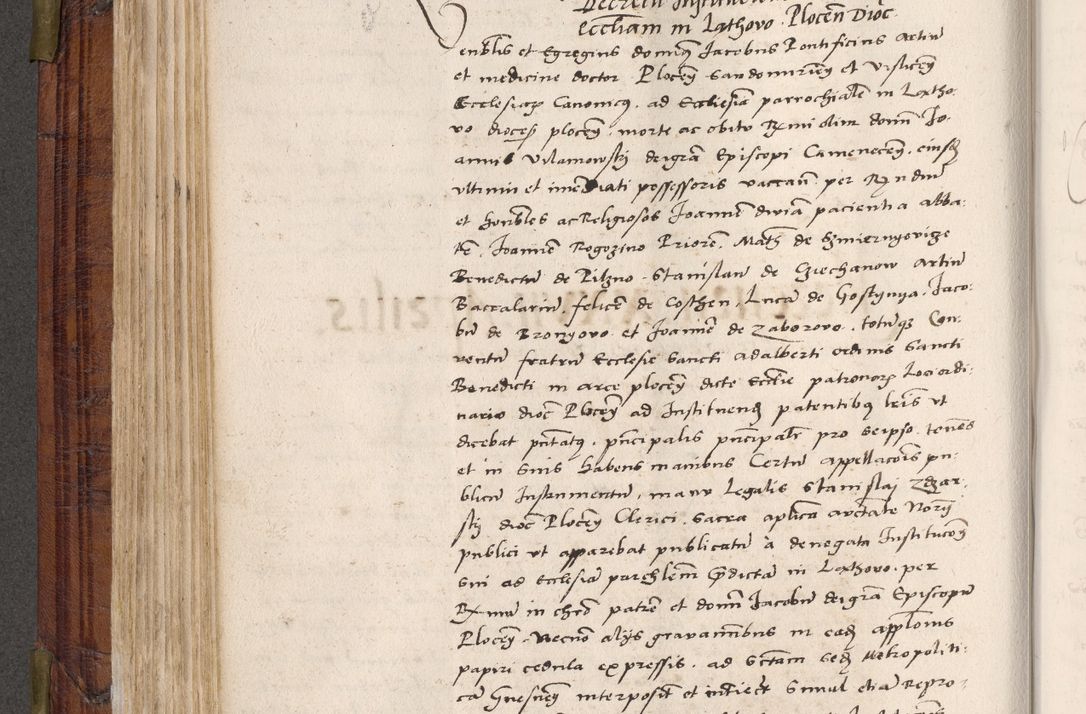 eccliam in Lathovo Plocen Dioc
enblis et Egregius dominus Jacobus Pontificius Artiu
et medicine doctor Plocen Sandomirien et Visliceń
Ecclesiarum Canonicus, ad Ecclesia parrochiale in Laxtho
vo dioces plocen, morte ac obitu Rmi olim domi Jo
annis Vilamowski dei gra Episcopi Camenecen, eiusq
ultimi et imediati possessoris vaccan per Rndu
et honbles ac Religiosos Joanne divia paciencia Abba
te, Joanne Rogozino Priore, Math de Szmierngovicze
Benedictu de Pilzno Stanislau de Cziechanow Artiu
Baccalariu, felice de Costhen, Luca de Gostynya, Jaco
bu de Bronyovo et Joanne de Zaborovo, totuqz Con
ventu fratru Ecclesie Sancti Adalberti ordinis Sancti
Benedicti in arce plocen dicte Ecclie patronorum Loci ordi
nario dioc Plocen ad Instituend patentibus lris ut
dicebat pntatus, principalis principalr pro seipso tenens
et in suis habens manibus Certu appellacois pu
blicu Instrumentu, manu Legalis Stanislai
ski dioc Plocen Clerici, Sacra aplica auctate Norij
publici ut apparebat publicatu a denegata Institucon
sui ad Ecclesia parchlem predicta in Laxthovo, per
Rxmu in chro patre et domi Jacobu dei gra Episcopu
Plocen, Necno alijs gravaminbus in ead applonis
papiri cedula expressis, ad Sctam Sed Metropoliti
ca Gnesnen interposit et Simul etia Repro